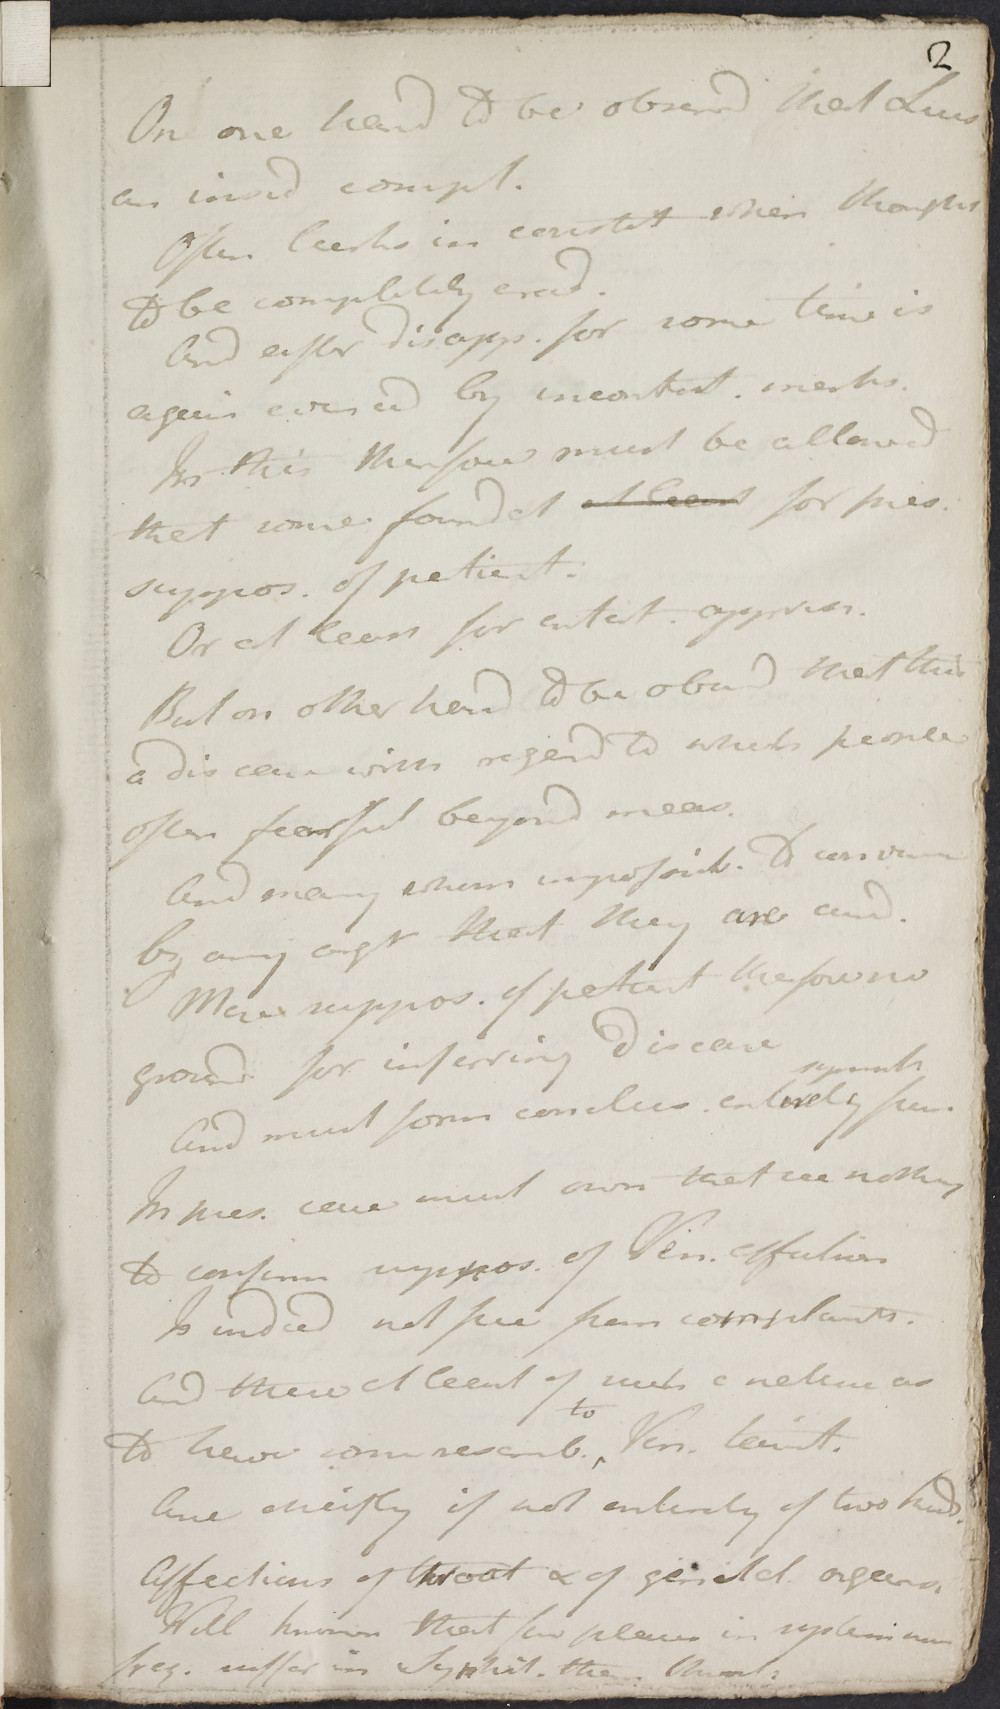 2
On one hand to be observd that Lues
an insid compl.
Often lurks in constit when thought
to be completely erad.
And after disapp. for some time is
again by incontest. marks.
In this therefore must be allowed
that some foundat at least for pres.
suppos. of patient.
Or at least for attent.
But on other hand to be obsd that this
a disease with regard to which people
often fearful beyond meas.
And many whom impossib. to convince
by any argt that they are curd.
Mere suppos. of patient therefore no
ground for inferring Disease
And must form conclus. entirely from
sympts
In pres. case must own that see nothing
to confirm suppos. of Ven. affection
Is indeed not free from complaints.
And these at least of such a nature as
to have some resemb. to Ven. taint.
Are chiefly if not entirely of two kinds.
Affections of throat & of genital organs.
Well known that few places in system more
freq. suffer in Syphil. than throat.